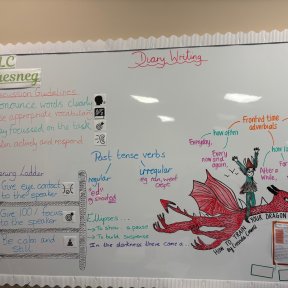 LC
Diary Writing
Discussion Guidelines
words clearly
appropriate vocabulary
focussed on the task
actively and respond
Ladder
Give eye contact
to the speaker
Give 100% focus
to the speaker
Be calm and
still
Past tense verbs
regular
irregular
ed
eg.
eg. ran, went
crept
Ellipses...
→ To show a pause
→ To build suspense
In the darkness there came a...
Fronted time
adverbials
how often
Everyday,
Every
now and
again,
After a
while,
HOW TO TRAIN
YOUR DRAGON